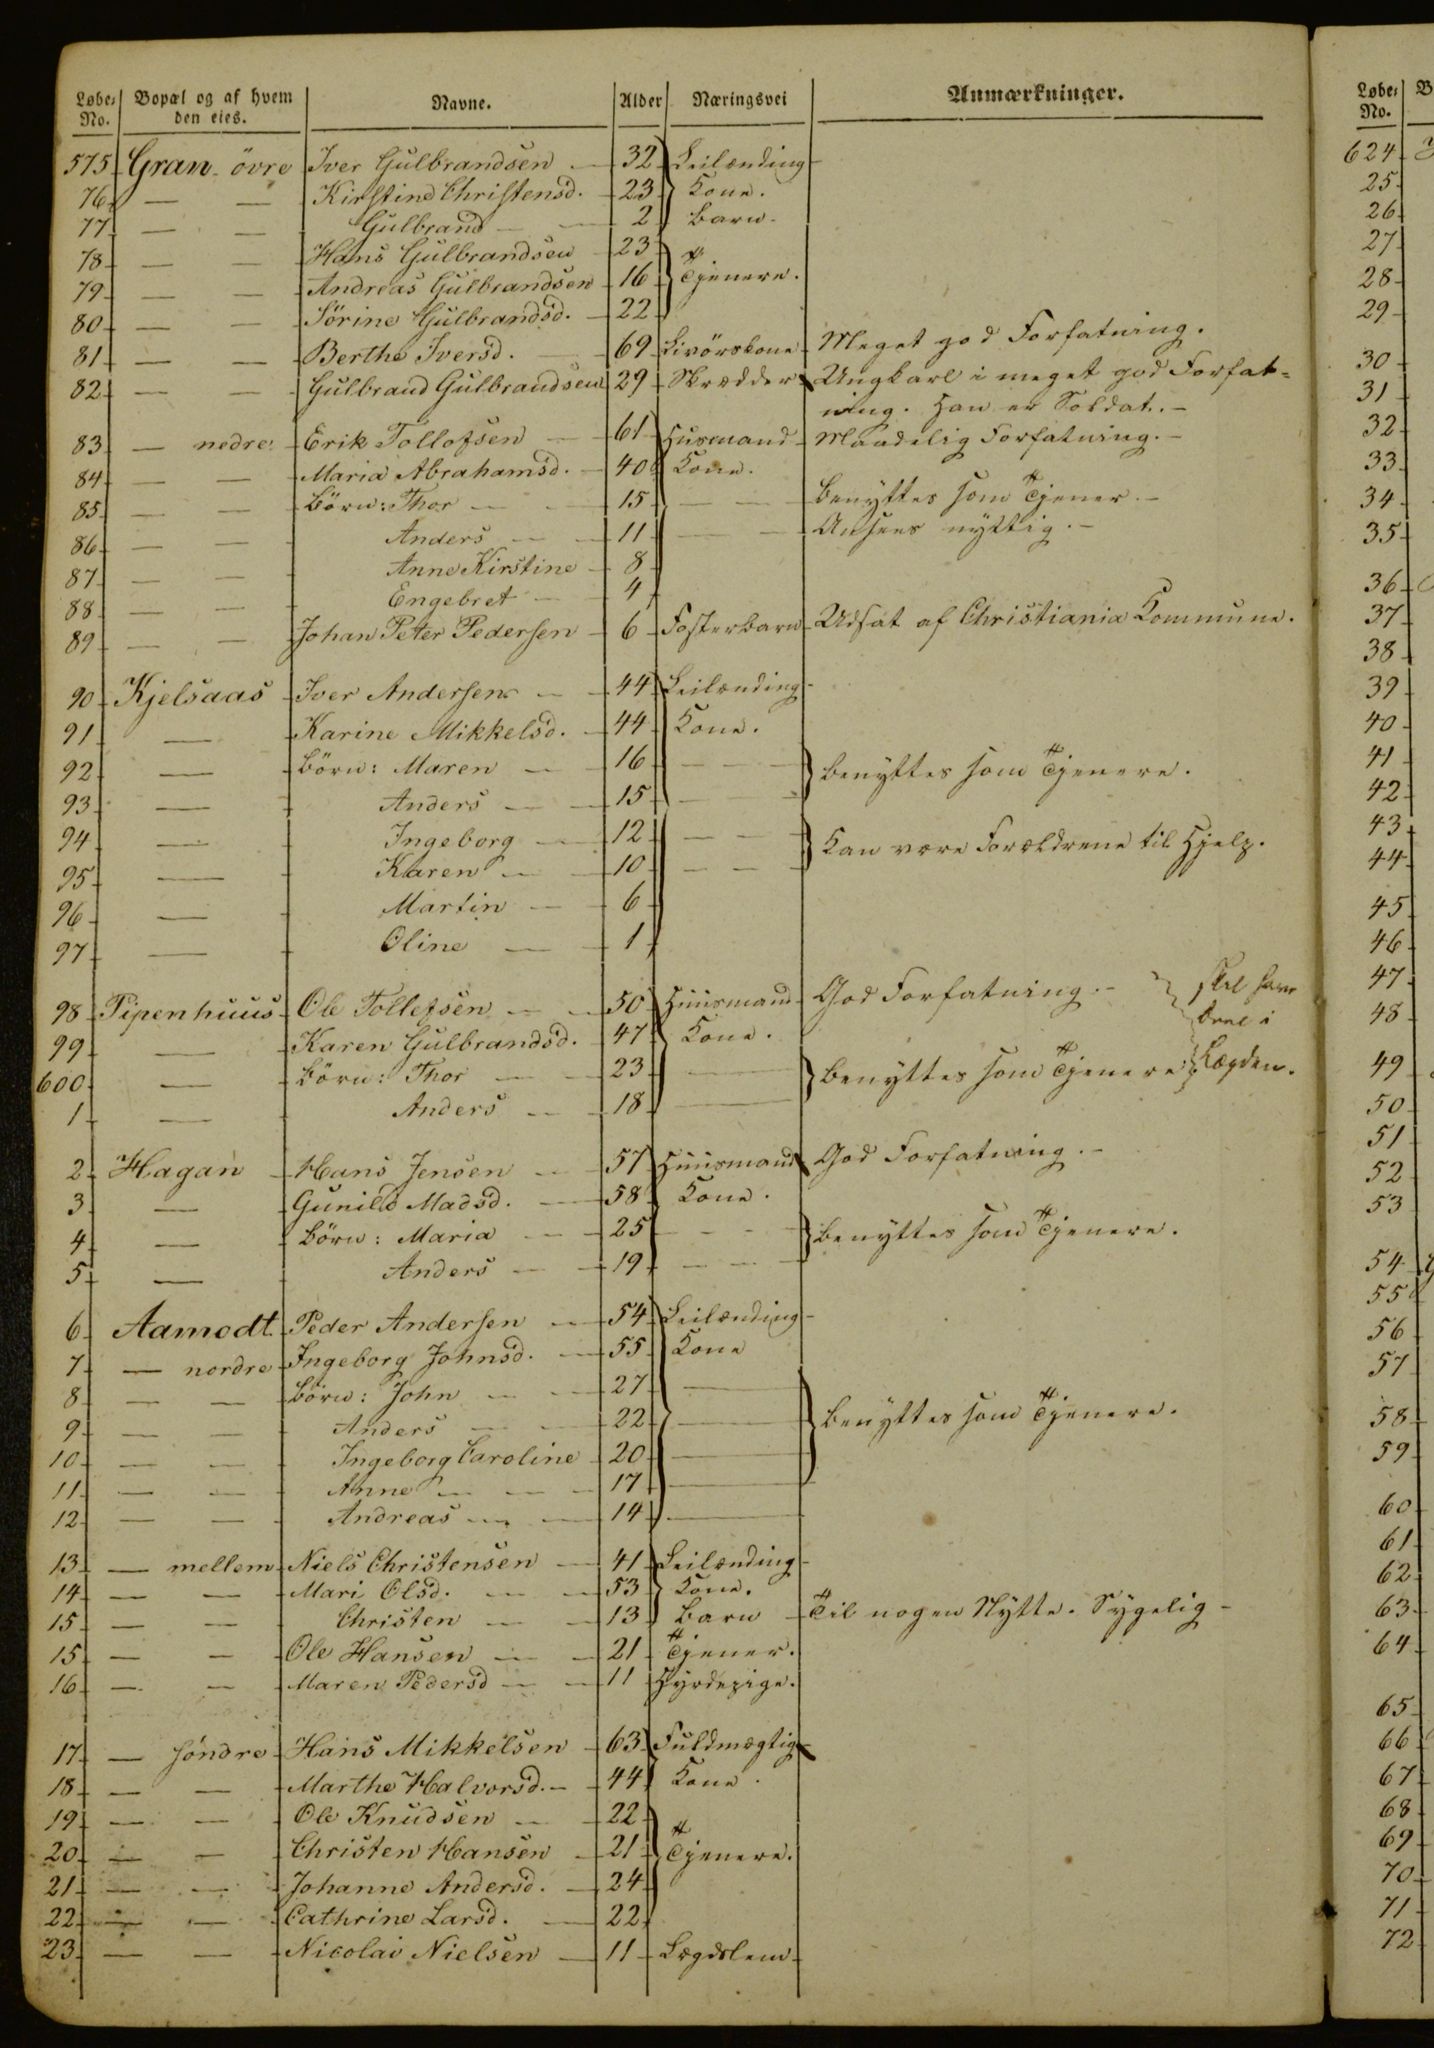 Løbe-No. Bopæl og af hvem den eies. Navne. Alder Næringsvei Anmærkninger.
575 Gran övre Iver Gulbrandsen — 32 Leilænding —
76 — — Kirstine Christensd. 23 Kone.
77 — — Gulbrand — 2 Barn.
78 — — Hans Gulbrandsen 23
79 — — Andreas Gulbrandsen 16 Tjenere.
80 — — Sörine Gulbrandsd. 22
81 — — Berthe Iversd. — 69 Livörskone Meget god Forfatning.
82 — — Gulbrand Gulbrandsen 29 Skrædder Ungkarl i meget god Forfat=
ning. Han er Soldat. —
83 — nedre Erik Tollofsen — 61 Husmand Maadelig Forfatning. —
84 — — Maria Abrahamsd. 40 Kone.
85 — — Börn: Thor — 15 — — benyttes som Tjener. —
86 — — Anders — 11 — — Ansees nyttig. —
87 — — Anne Kirstine 8
88 — — Engebret — 4
89 — — Johan Peter Pedersen 6 Fosterbarn Udsat af Christiania Kommune.
90 Kjelsaas Iver Andersen — 44 Leilænding —
91 — Karine Mikkelsd. 44 Kone.
92 — Börn: Maren — 16 — — benyttes som Tjenere.
93 — Anders — 15 — —
94 — Ingeborg — 12 — — Kan være Forældrene til Hjelp.
95 — Karen — 10 — —
96 — Martin — 6
97 — Oline — 1
98 Pipenhuus Ole Tollefsen — 50 Huusmand God Forfatning. — skal have
99 — Karen Gulbrandsd. 47 Kone. i
600 — Börn: Thor — 23 — benyttes som Tjenere Lægden.
1 — Anders — 18 —
2 Hagan Hans Jensen — 57 Huusmand God Forfatning. —
3 — Gunild Madsd. — 58 Kone.
4 — Börn: Maria — 25 — — benyttes som Tjenere.
5 — Anders — 19 — —
6 Aamodt Peder Andersen — 54 Leilænding —
7 — nordre Ingeborg Johnsd. — 55 Kone
8 — — Börn: John — 27 —
9 — — Anders — 22 — benyttes som Tjenere.
10 — — Ingeborg Caroline 20 —
11 — — Anne — 17 —
12 — — Andreas — 14 —
13 — mellem Niels Christensen — 41 Leilænding —
14 — — Mari Olsd. — 53 Kone.
15 — — Christen — 13 Barn Til nogen Nytte. Sygelig —
15 — — Ole Hansen — 21 Tjener.
16 — — Maren Pedersd — 11 Hyrdepige.
17 — söndre Hans Mikkelsen 63 Fuldmægtig
18 — — Marthe Halvorsd. — 44 Kone.
19 — — Ole Knudsen — 22
20 — — Christen Hansen 21 Tjenere.
21 — — Johanne Andersd. 24
22 — — Cathrine Larsd. — 22
23 — — Nicolai Nielsen — 11 Lægdslem
Løbe-No. B
624
25
26
27
28
29
30
31
32
33
34
35
36
37
38
39
40
41
42
43
44
45
46
47
48
49
50
51
52
53
54
55
56
57
58
59
60
61
62
63
64
65
66
67
68
69
70
71
72